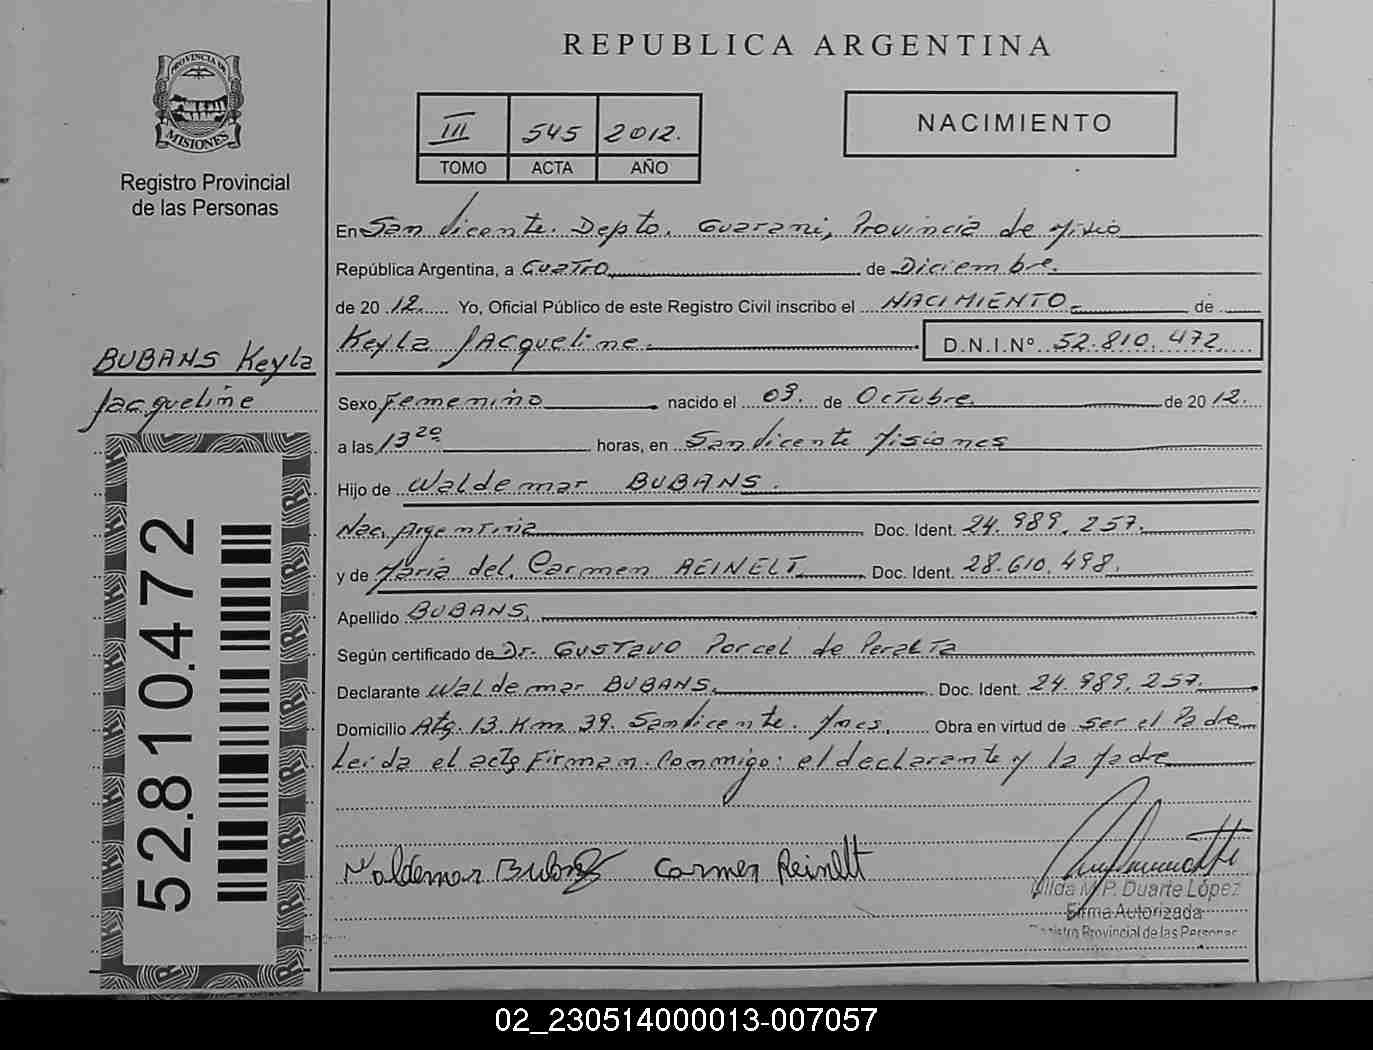 REPUBLICA ARGENTINA
PROVINCIA DE
MISIONES
Registro Provincial
de las Personas
III 545 2012.
TOMO ACTA AÑO
NACIMIENTO
En San Vicente. Depto. Guarani, Provincia de Misio
República Argentina, a Cuatro de Diciembre.
de 20 12. Yo, Oficial Público de este Registro Civil inscribo el NACIMIENTO de
Keyla Jacqueline. D.N.I.Nº 52.810.472
BUBANS Keyla
Jacqueline
Sexo Femenino nacido el 03. de Octubre. de 20 12.
a las 13 20 horas, en San Vicente Misiones
Hijo de Waldemar BUBANS.
Nac. Argentina Doc. Ident. 24.989.257.
y de Maria del Carmen REINELT Doc. Ident. 28.610.498.
Apellido BUBANS.
Según certificado de Dr. Gustavo Porcel de Peralta
Declarante Waldemar BUBANS. Doc. Ident. 24.989.257.
Domicilio Km. 39. San Vicente. Mnes. Obra en virtud de ser el Padre
Leida el acta Firman Conmigo: el declarante y la Madre
Waldemar Bubans Carmen Reinelt
Hilda M.P. Duarte López
Firma Autorizada
Registro Provincial de las Personas
52.810.472
02_230514000013-007057